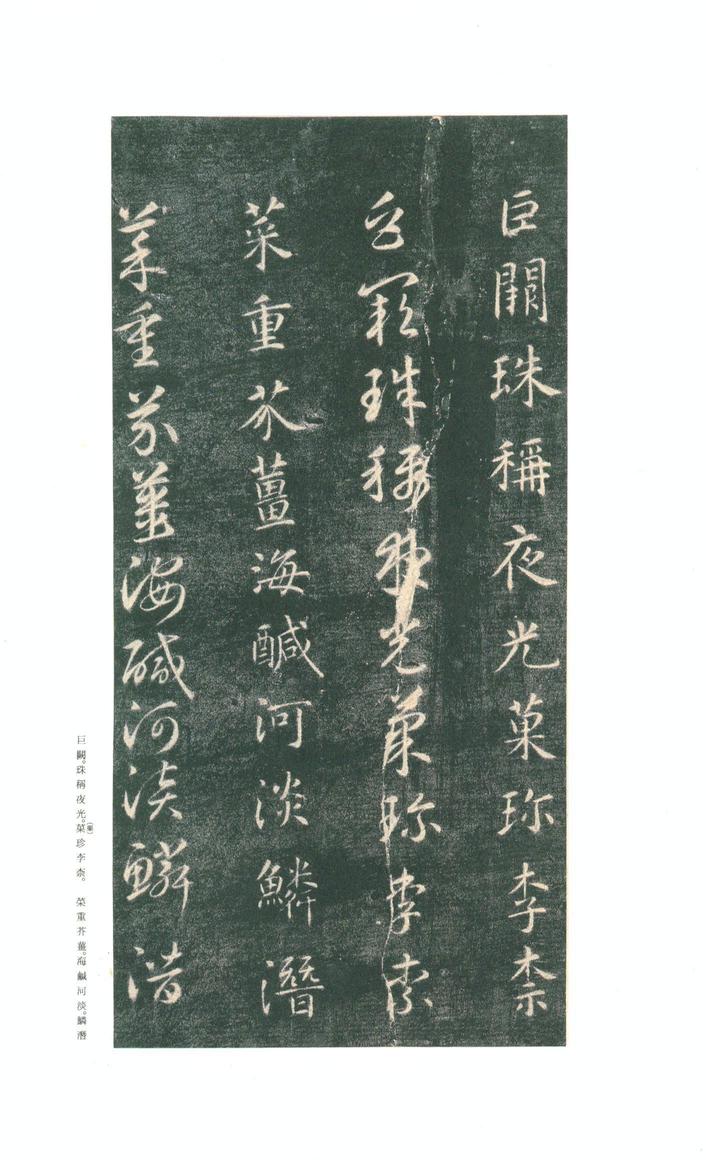 巨闕珠稱夜光菓珍李柰
巨闕珠稱夜光菓珍李柰
菜重芥薑海鹹河淡鱗潛
菜重芥薑海鹹河淡鱗潛
巨闕。珠稱夜光。菓(果)珍李柰。菜重芥薑。海鹹河淡。鱗潛